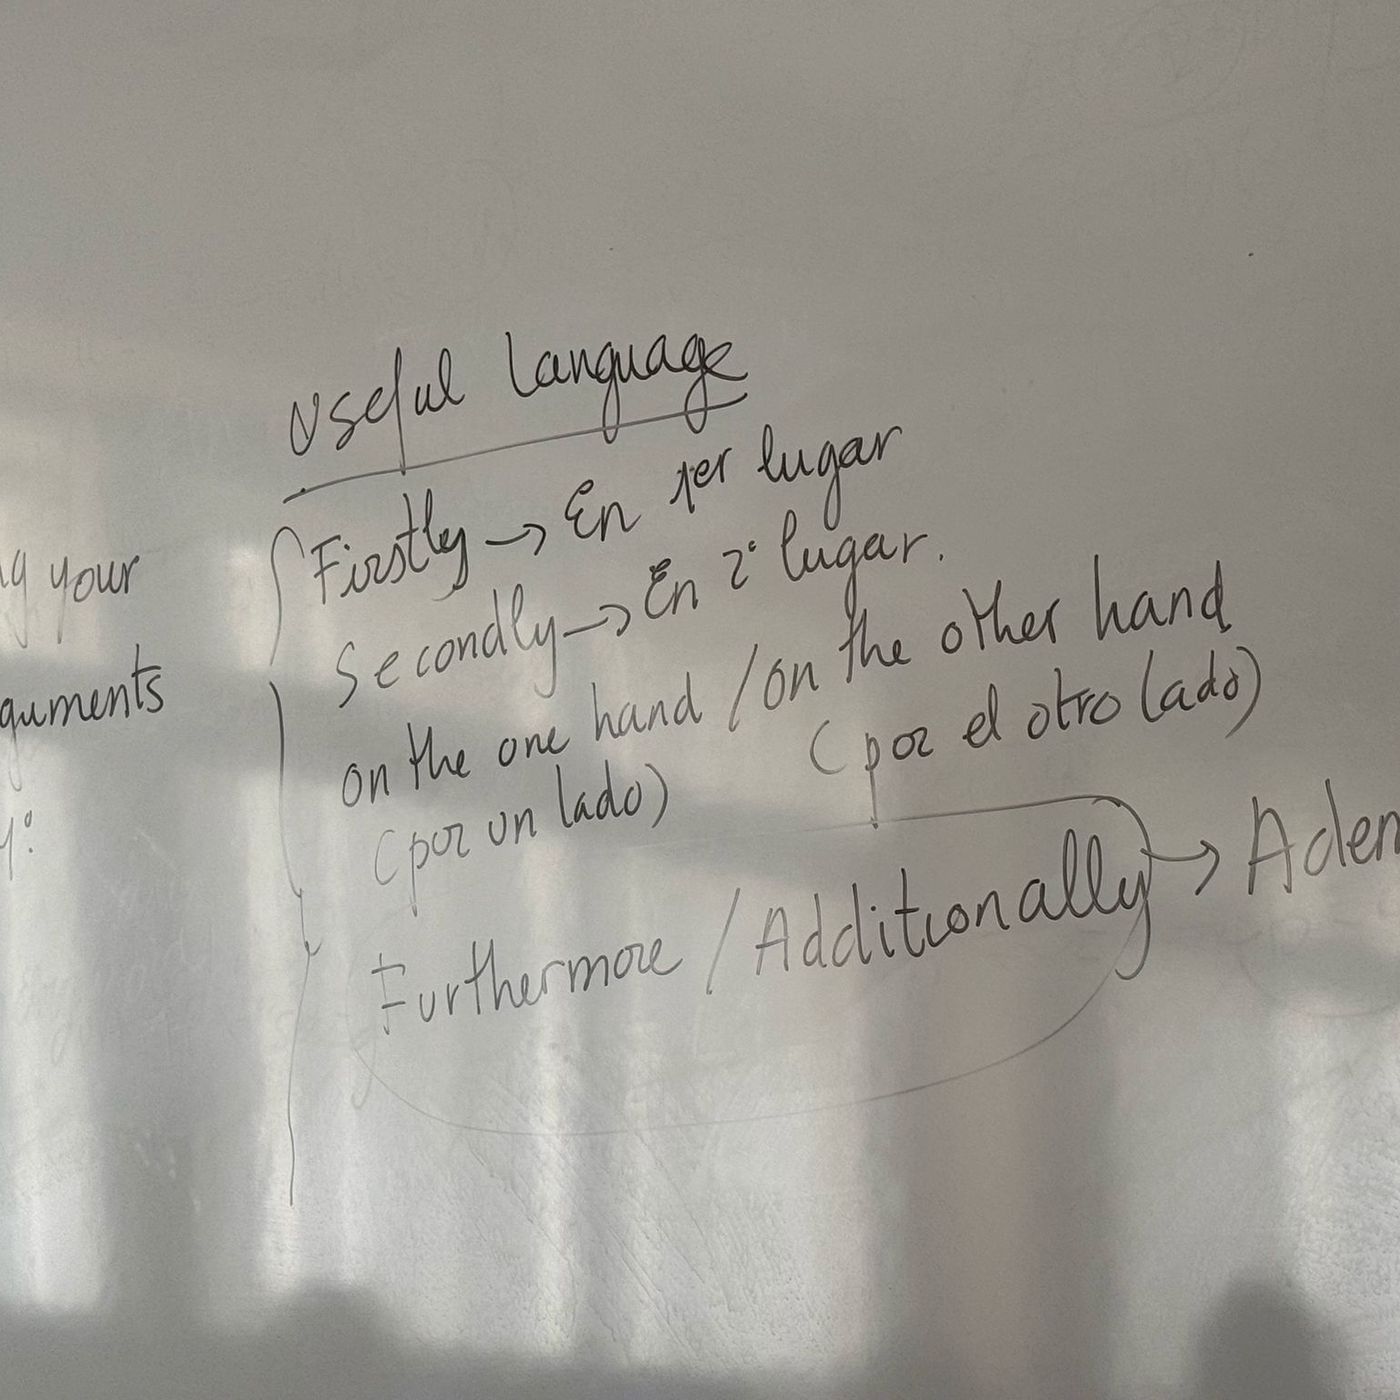 Useful language
Firstly → En 1er lugar
Secondly → En 2º lugar.
your
on the one hand / on the other hand
(por un lado) (por el otro lado)
Furthermore / Additionally → Adem